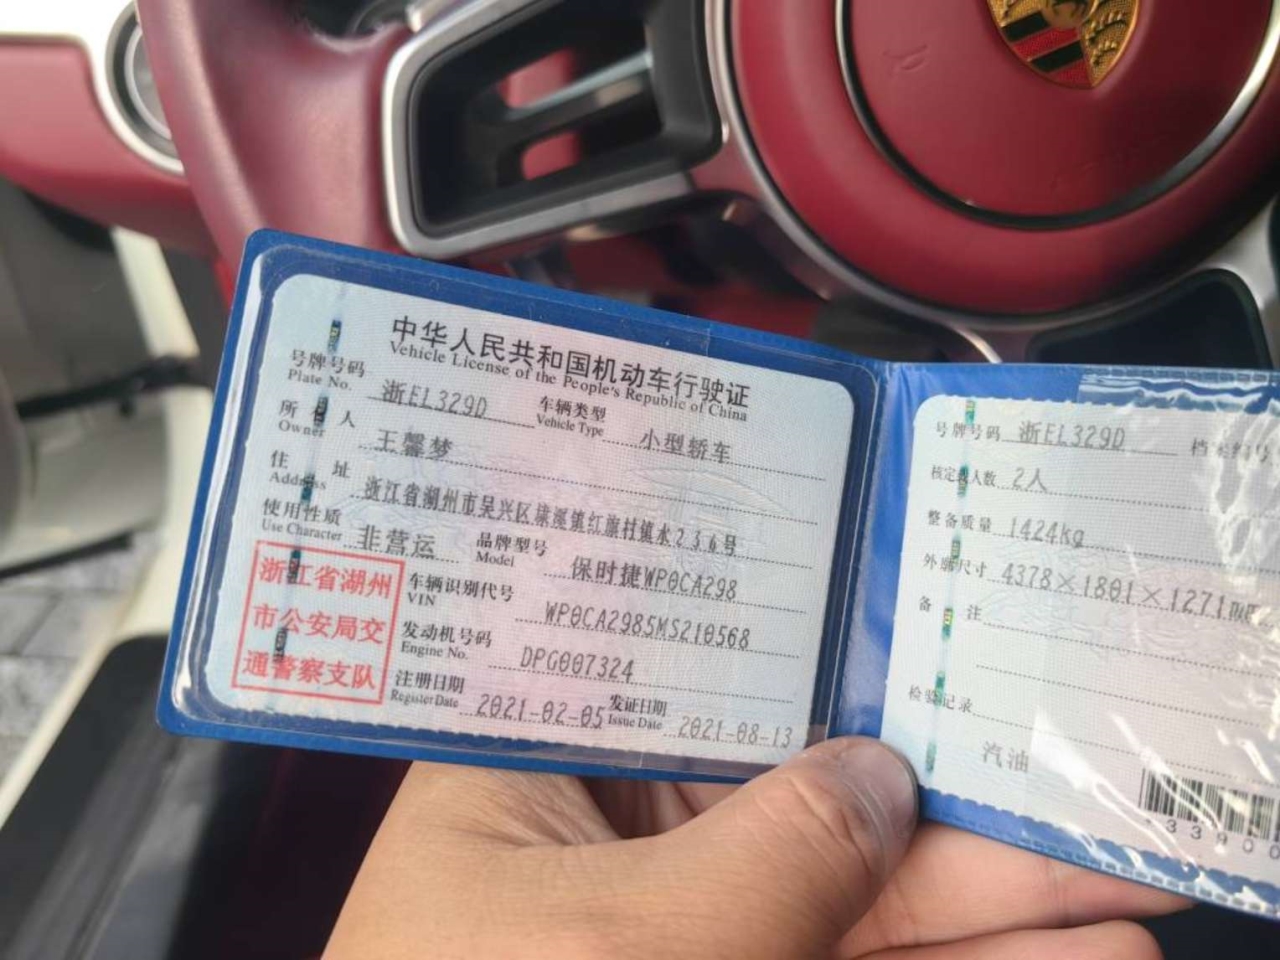 中华人民共和国机动车行驶证
Vehicle License of the People's Republic of China
号牌号码 浙EL329D 车辆类型 小型轿车
Plate No. Vehicle Type
所有人 王馨梦
Owner
住址 浙江省湖州市吴兴区埭溪镇红旗村镇水236号
Address
使用性质 非营运 品牌型号 保时捷WP0CA298
Use Character Model
浙江省湖州
市公安局交
通警察支队
车辆识别代号 WP0CA2985MS210568
VIN
发动机号码 DPG007324
Engine No.
注册日期 2021-02-05 发证日期 2021-08-13
Register Date Issue Date
号牌号码 浙EL329D 档案编号
核定载人数 2人
整备质量 1424kg
外廓尺寸 4378×1801×1271mm
备注
检验记录
汽油
33900